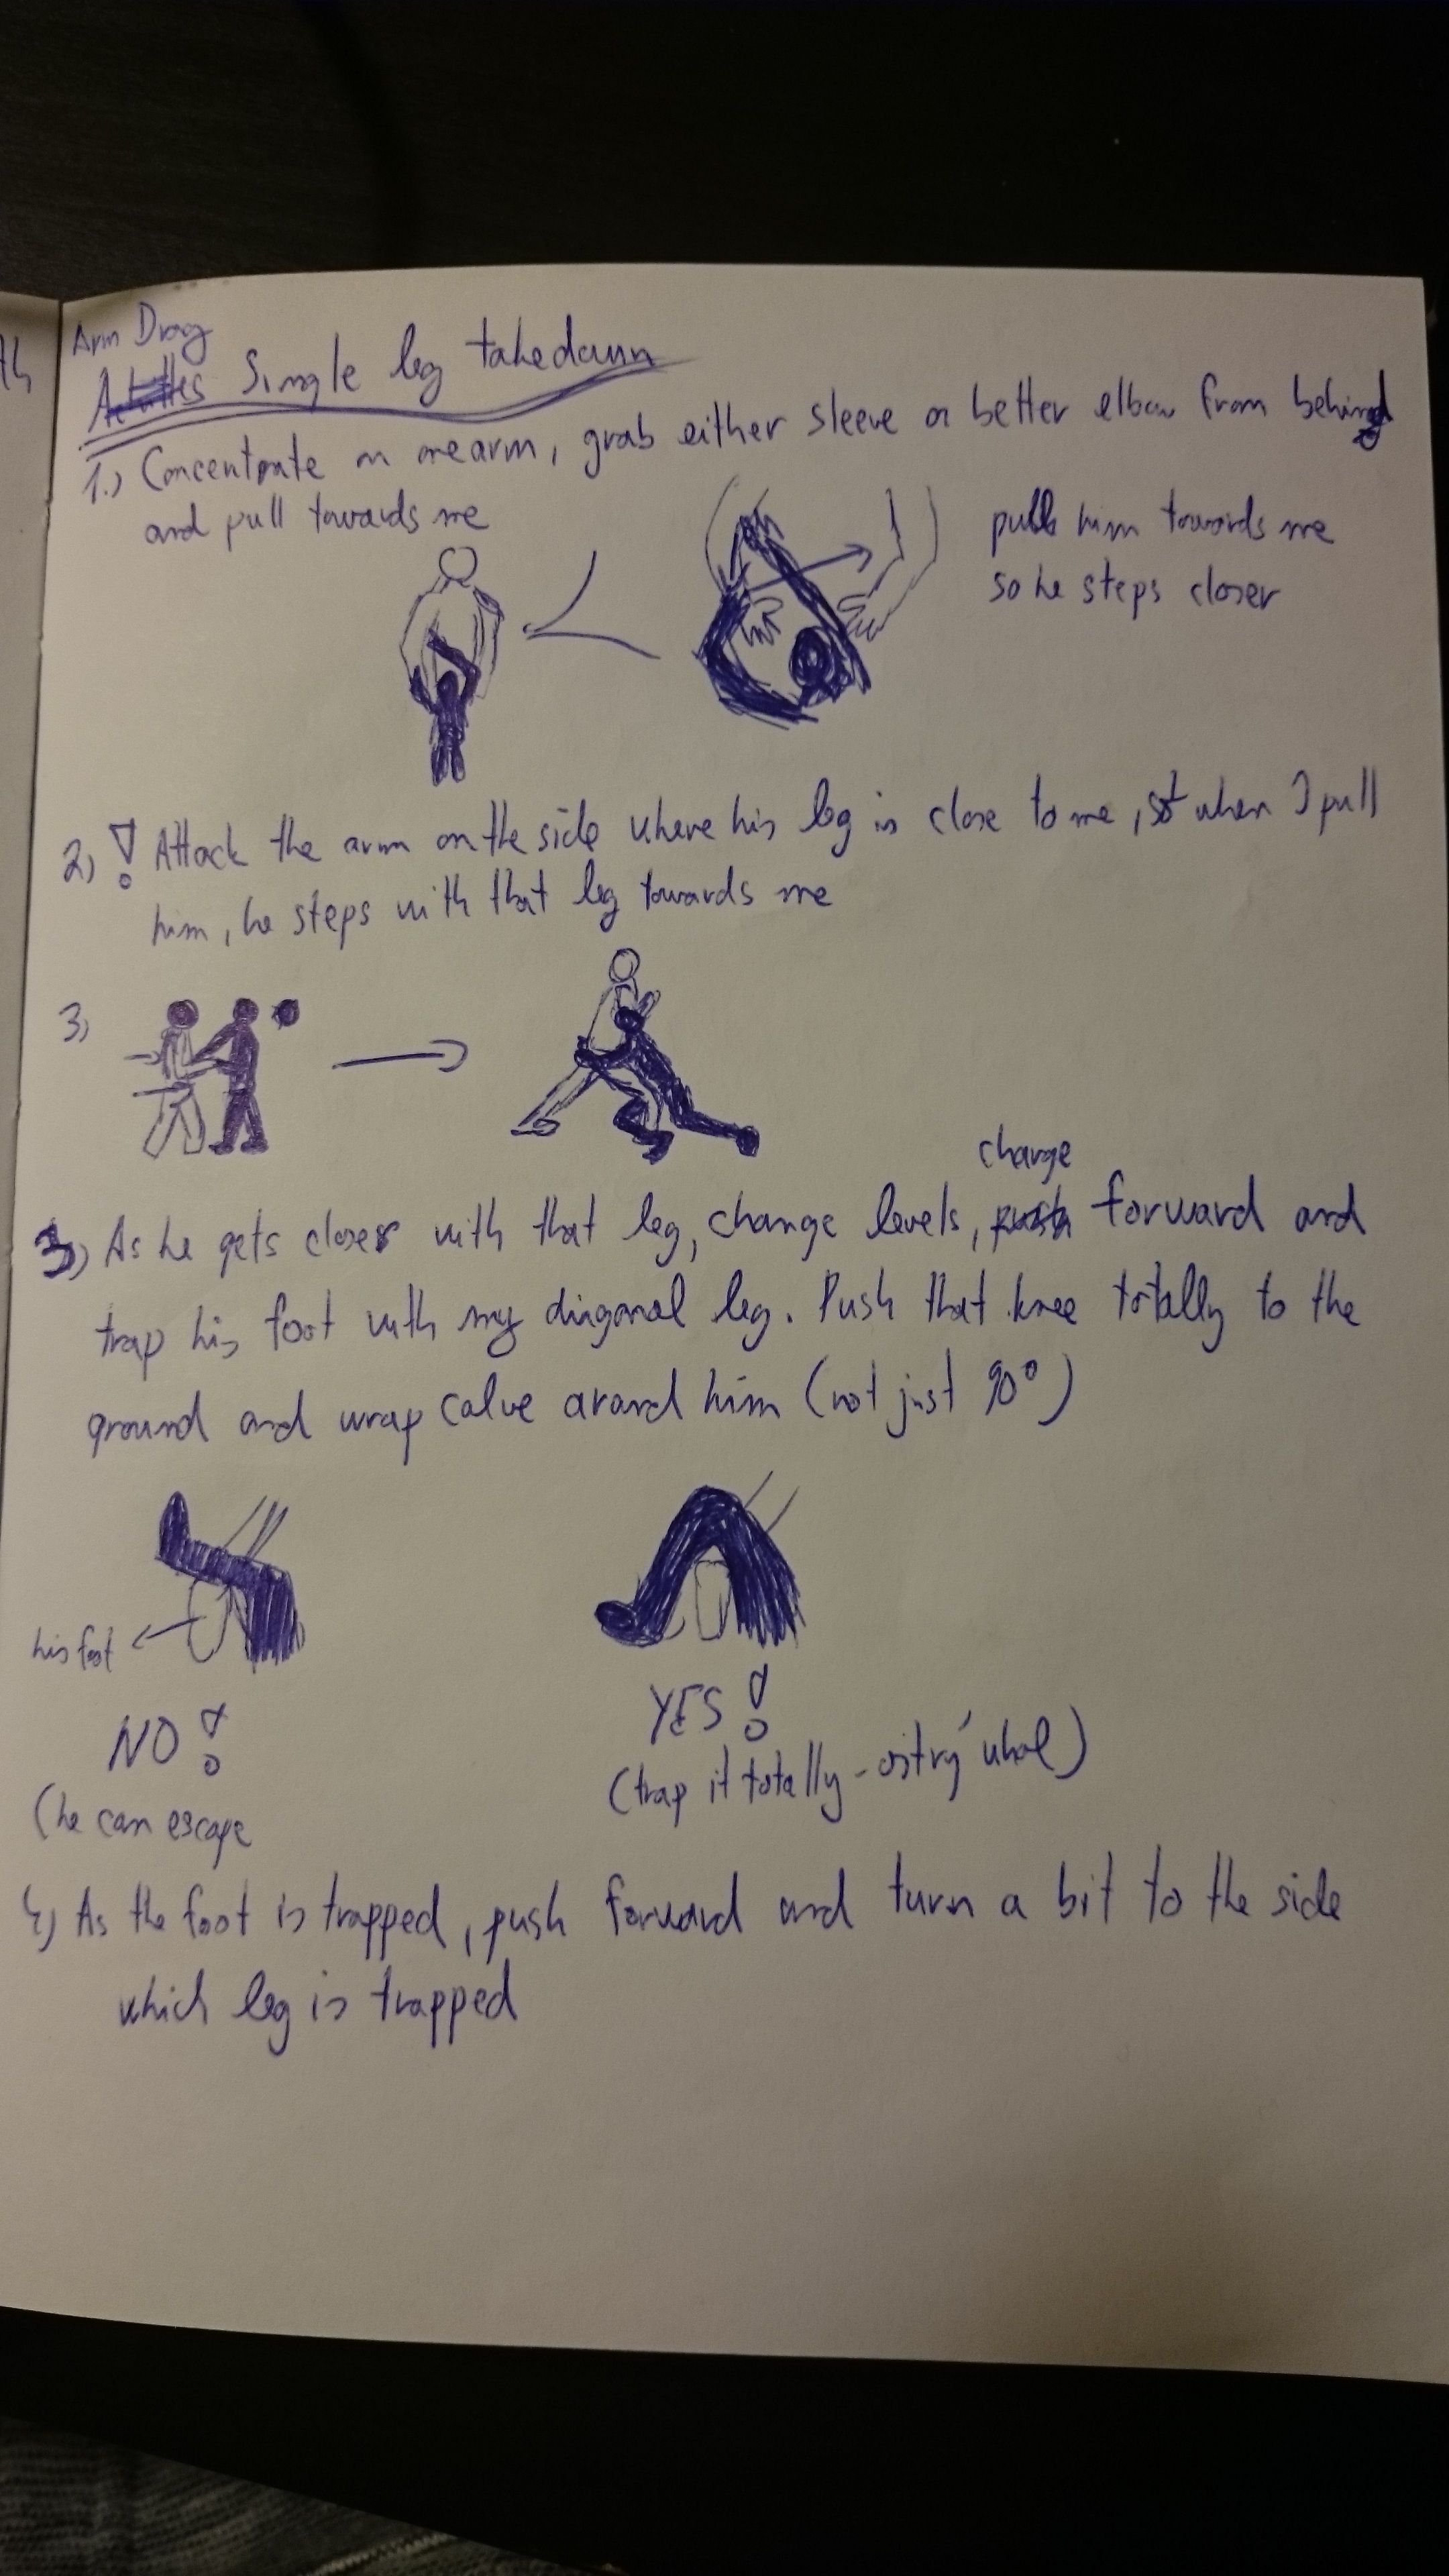 Arm Drag
Single leg takedown
1.) Concentrate on one arm, grab either sleeve or better elbow from behind
and pull towards me
pull him towards me
so he steps closer
2) ! Attack the arm on the side where his leg is close to me, so when I pull
him, he steps with that leg towards me
3)
charge
3) As he gets closer with that leg, change levels, push forward and
trap his foot with my diagonal leg. Push that knee totally to the
ground and wrap calve around him (not just 90°)
his foot
NO !
YES !
(he can escape
(trap it totally - ostrý uhol)
4) As the foot is trapped, push forward and turn a bit to the side
which leg is trapped